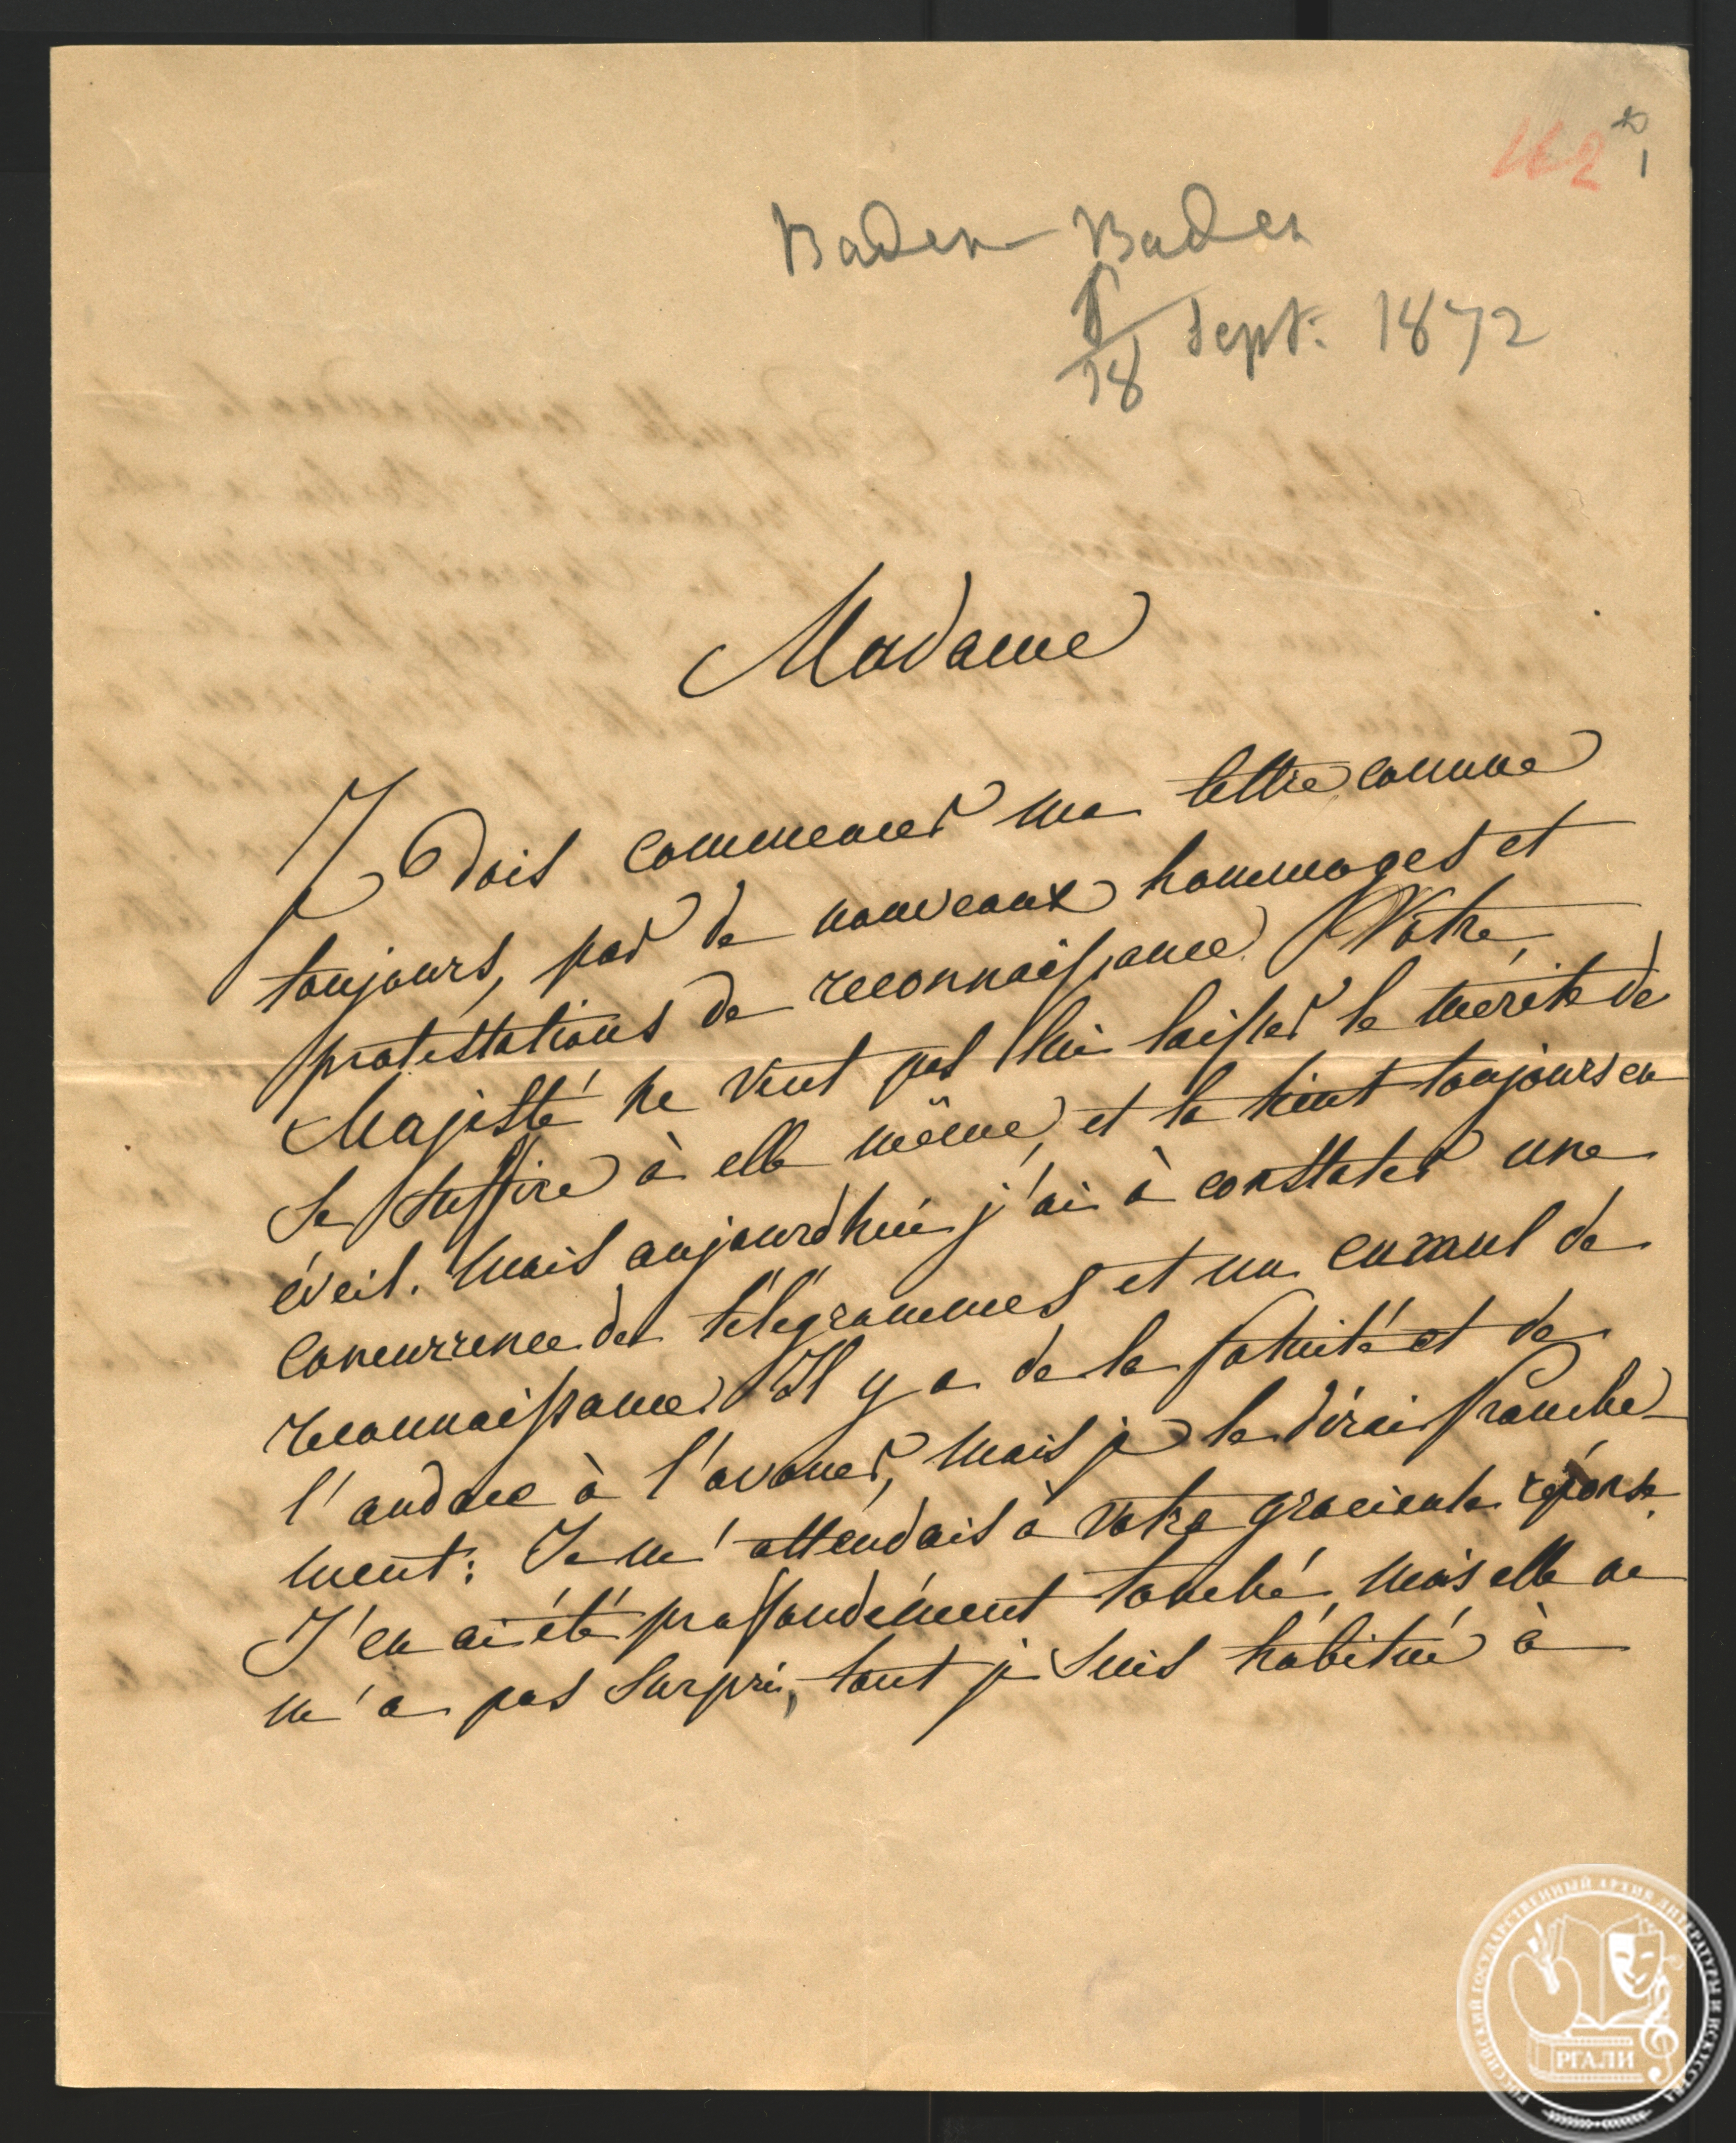 162
1
Baden-Baden
6/18 Sept. 1872
Madame
Je dois commencer ma lettre comme
toujours, par de nouveaux hommages et
protestations de reconnaissance. Votre
Majesté ne veut pas lui laisser le mérite de
se suffire à elle même, et la tient toujours en
éveil. Mais aujourdhui j'ai à constater une
concurrence de télégrammes et un cumul de
reconnaissance. Il y a de la fatuité et de
l'audace à l'avouer, mais je le dirai franche-
ment: Je m'attendais à Votre gracieuse réponse.
J'en ai été proffondément touché, mais elle ne
m'a pas surpri, tant je suis habitué à
РОССИЙСКИЙ ГОСУДАРСТВЕННЫЙ АРХИВ ЛИТЕРАТУРЫ И ИСКУССТВА
РГАЛИ